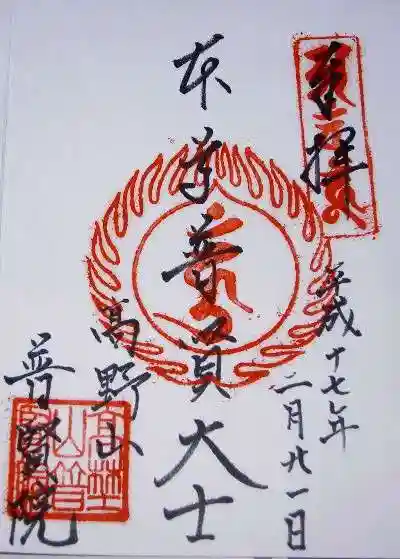 奉拝
平成十七年
二月廿一日
本尊普賢大士
高野山
普賢院